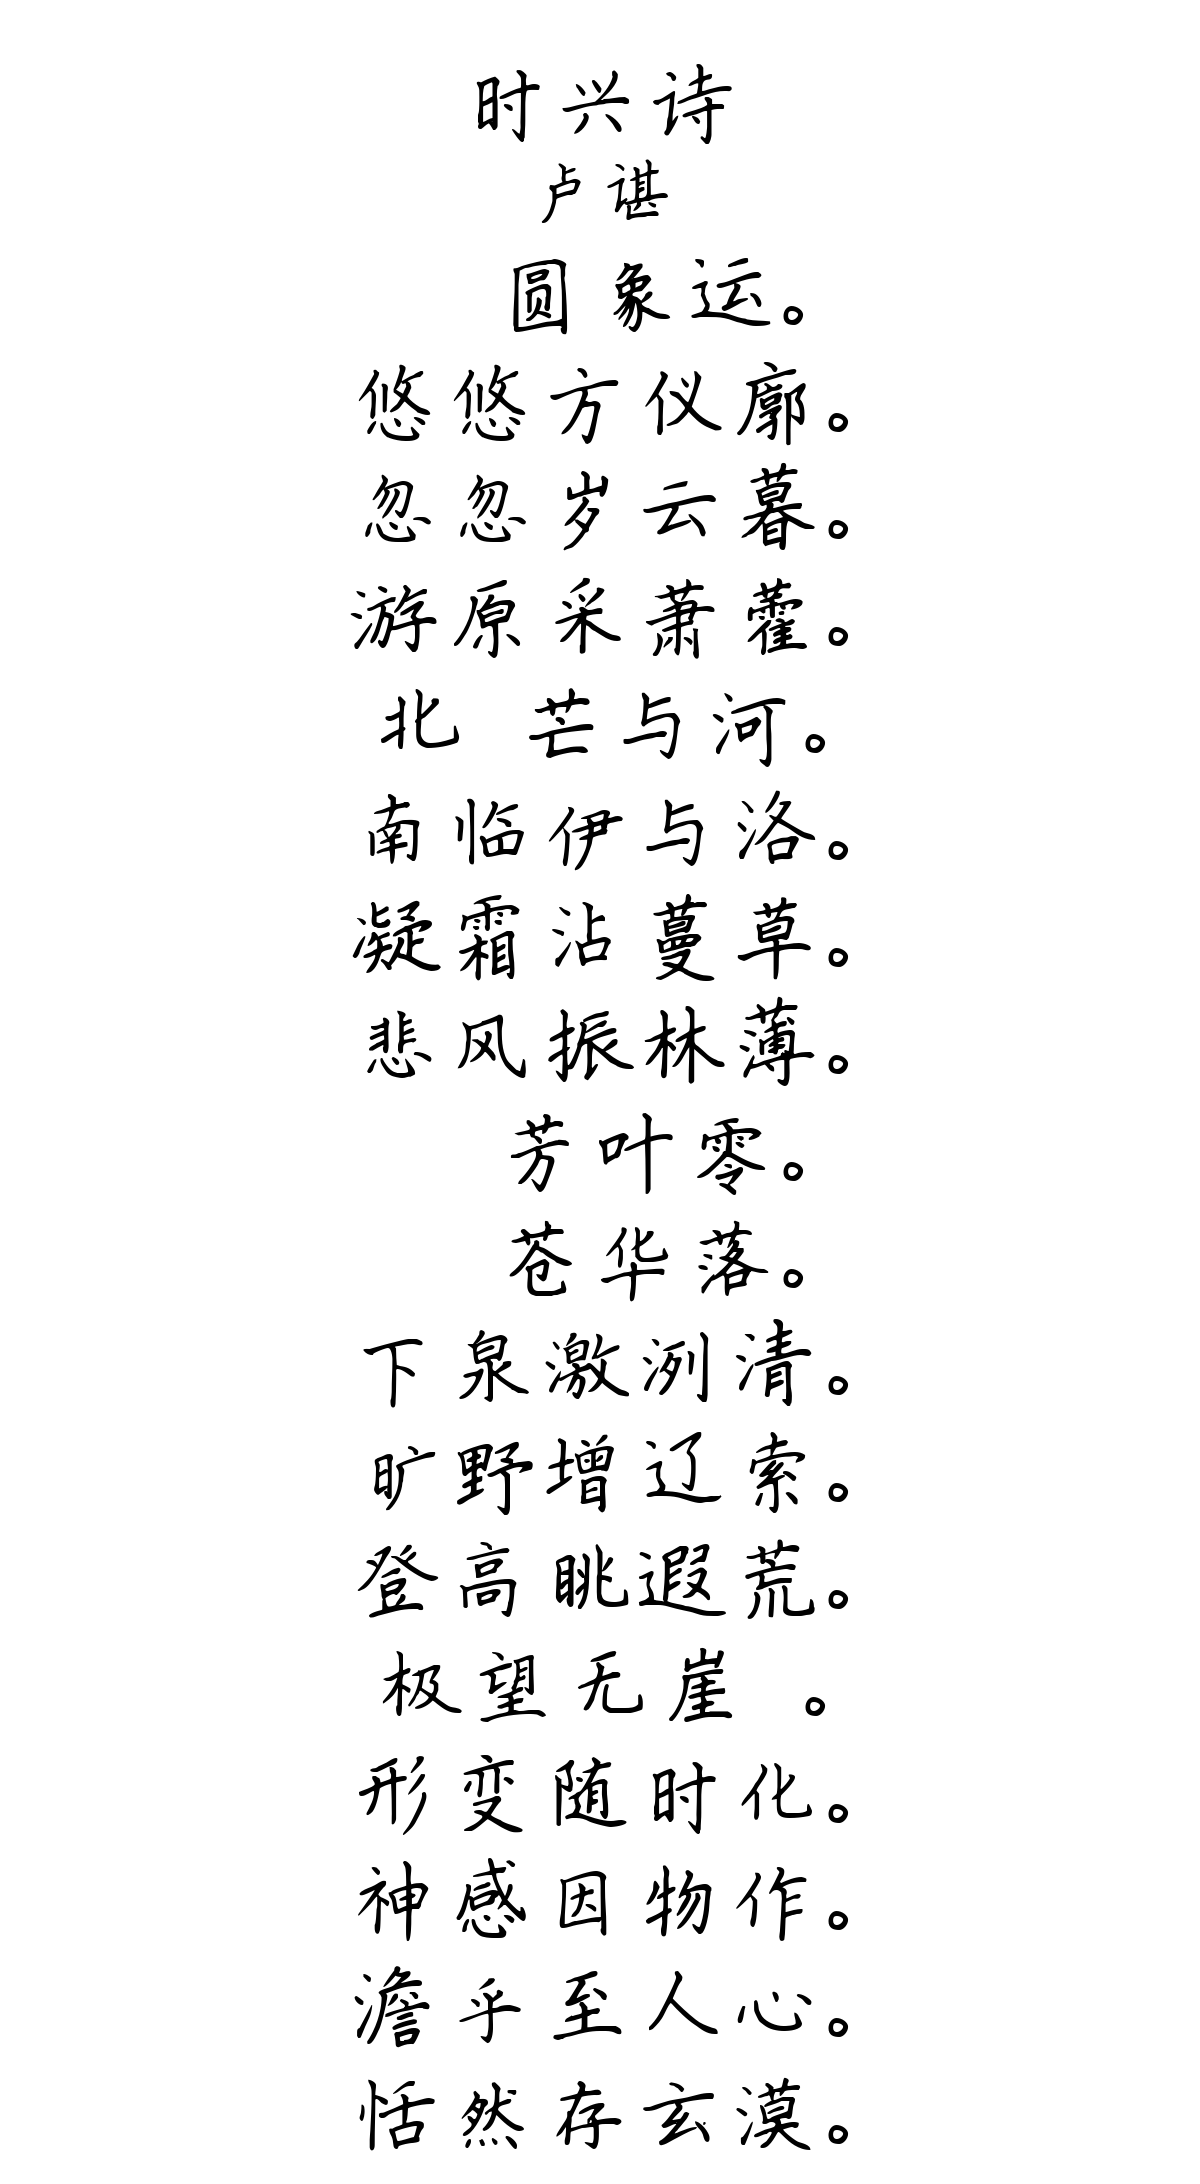 时兴诗
卢谌
圆象运。
悠悠方仪廓。
忽忽岁云暮。
游原采萧藿。
北 芒与河。
南临伊与洛。
凝霜沾蔓草。
悲风振林薄。
芳叶零。
苍华落。
下泉激洌清。
旷野增辽索。
登高眺遐荒。
极望无崖 。
形变随时化。
神感因物作。
澹乎至人心。
恬然存玄漠。